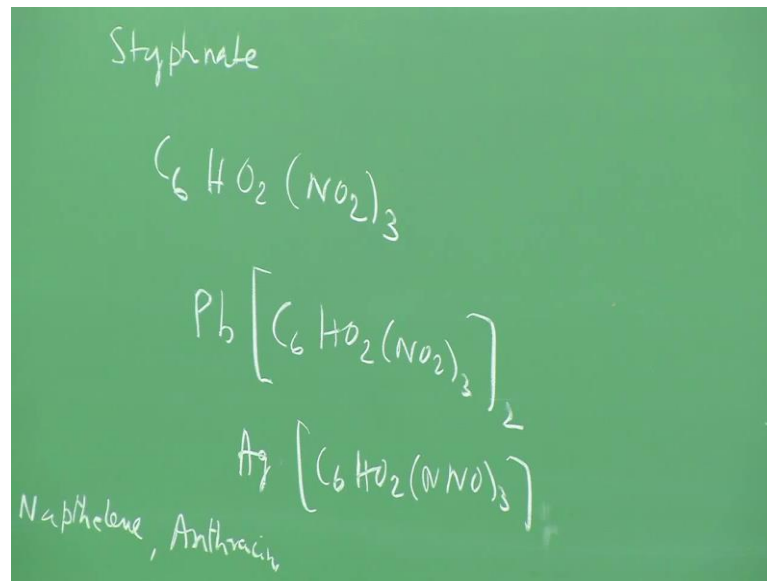 Styphnate
C₆HO₂(NO₂)₃
Pb[C₆HO₂(NO₂)₃]₂
Ag[C₆HO₂(NNO)₃]
Napthelene, Anthracin